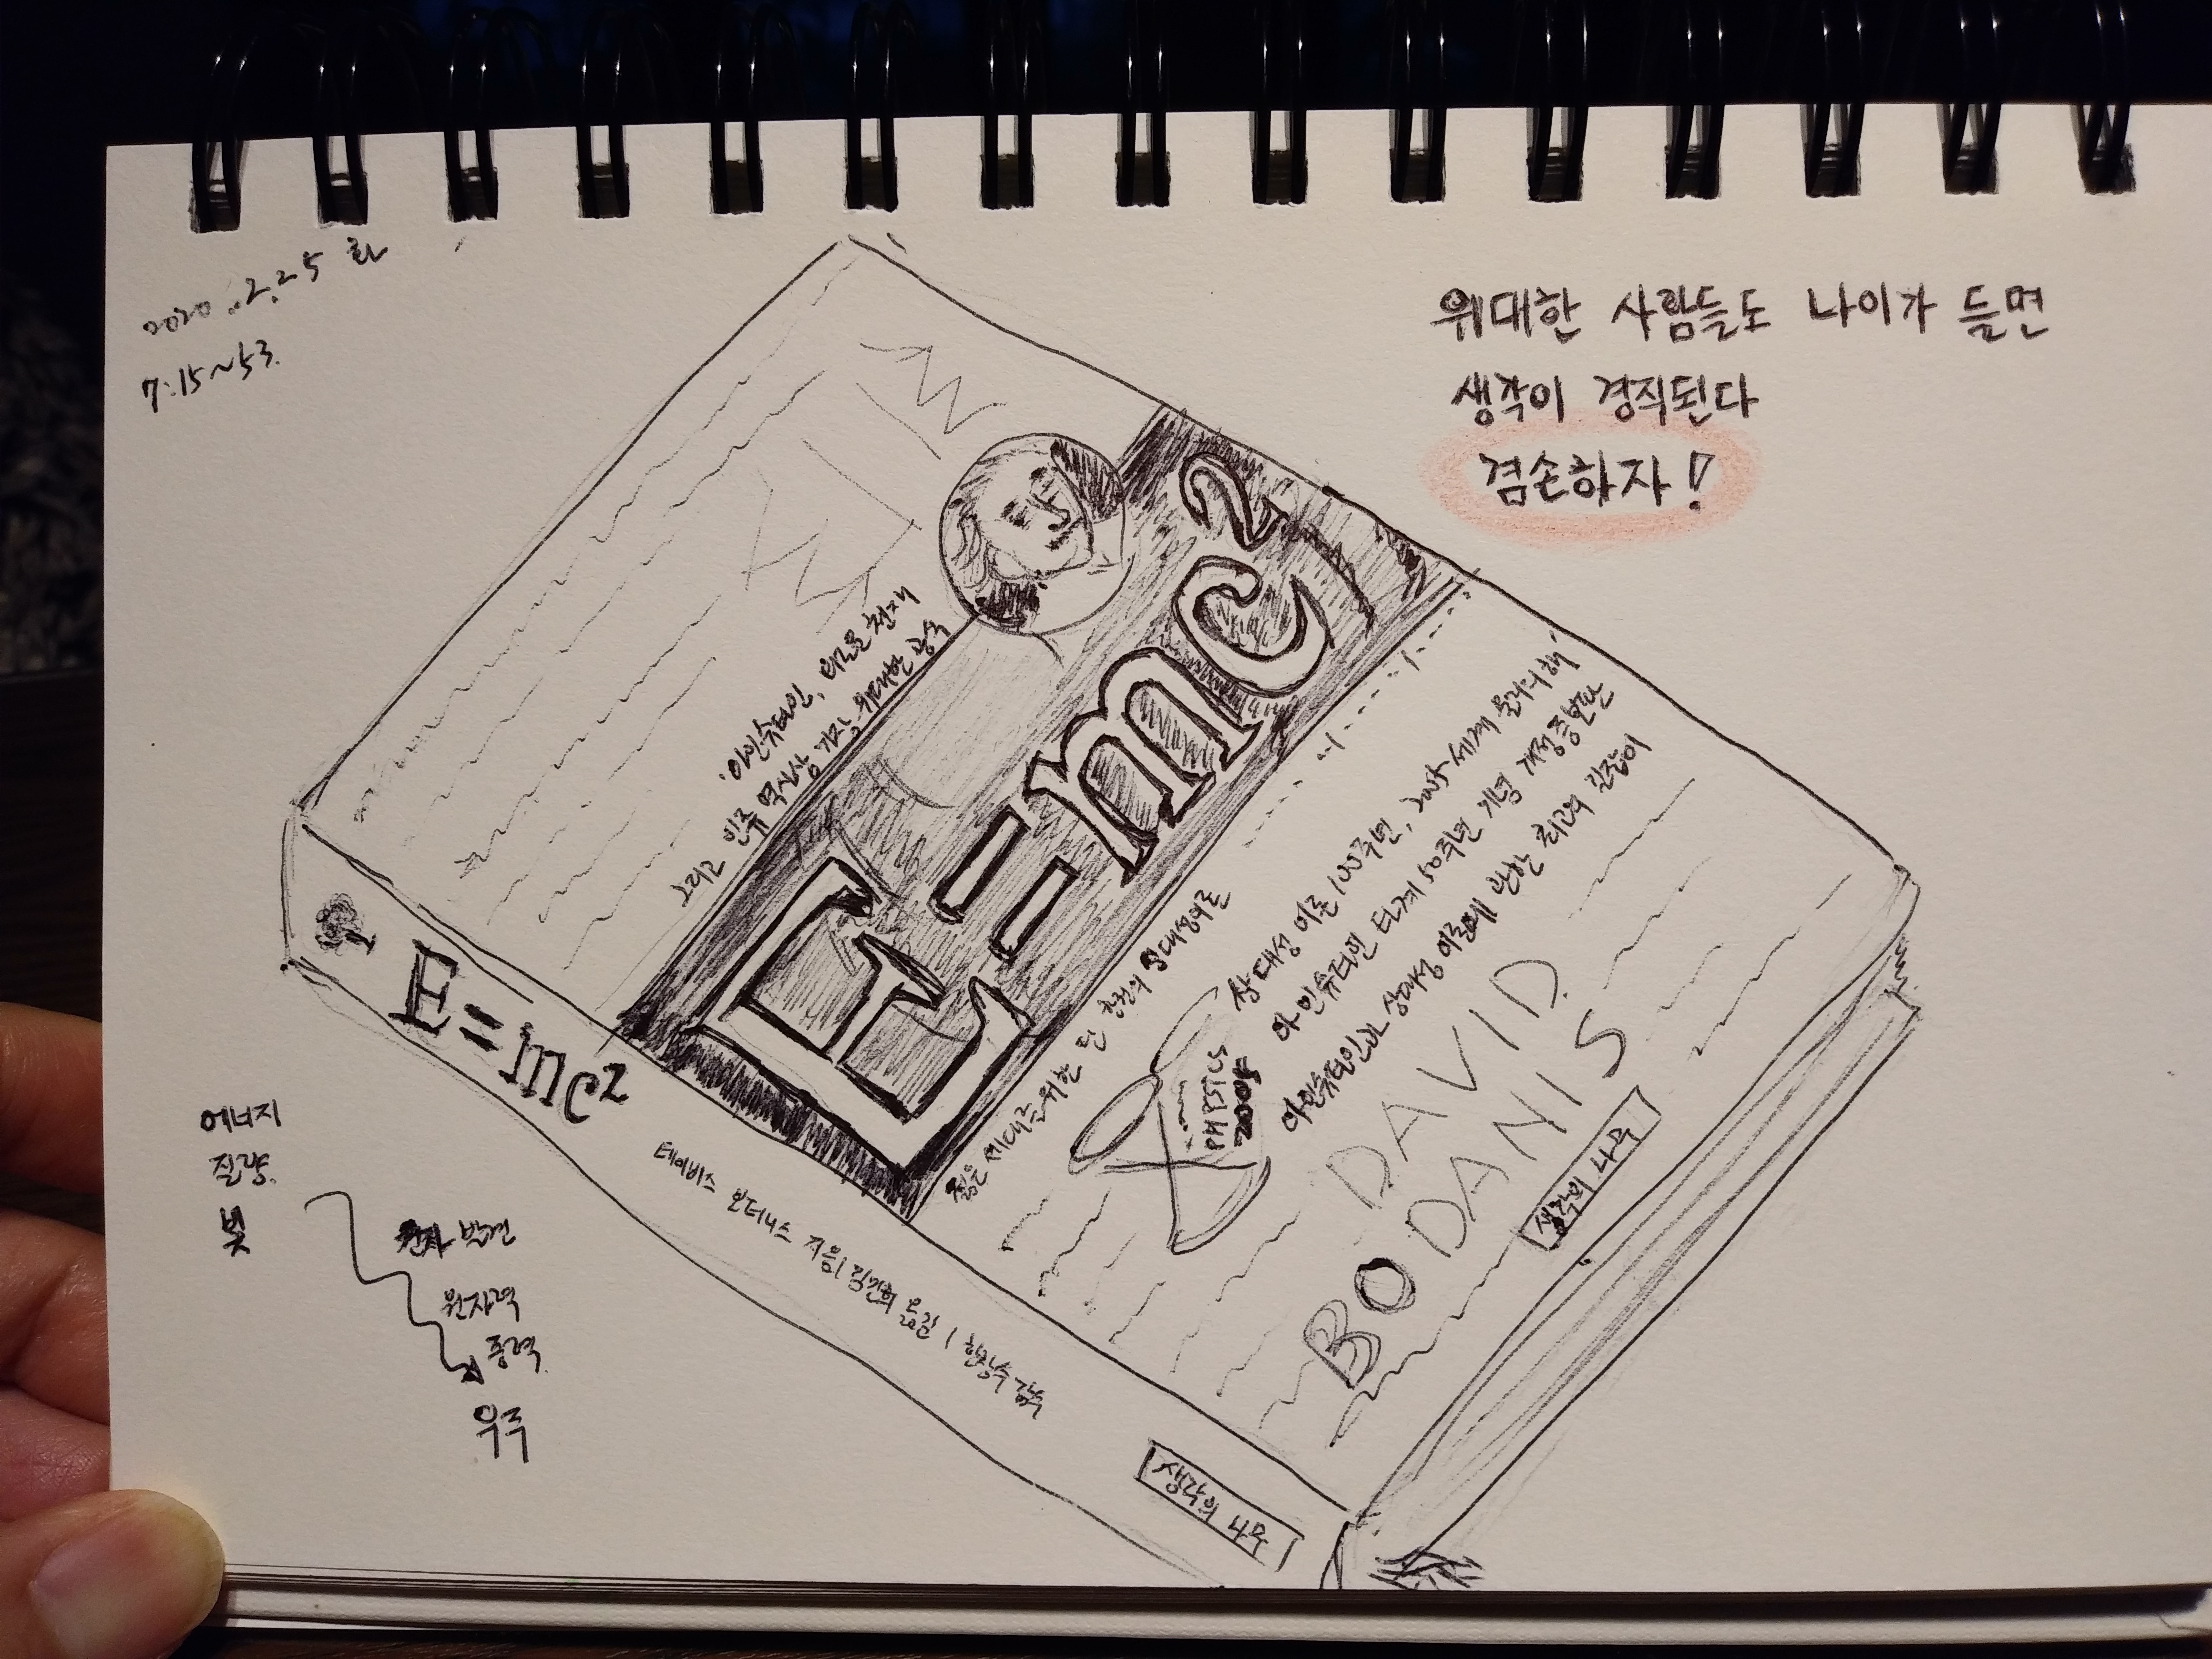 2020.2.25 화
7:15~53.
위대한 사람들도 나이가 들면
생각이 경직된다
겸손하자!
아인슈타인, 외로운 천재
그리고 인류 역사상 가장 위대한 공식
E=mc²
젊은 세대를 위한 단 한권의 상대성이론
상대성 이론 100주년, 2005 세계 물리의 해
아인슈타인 타계 50주년 기념 개정증보판
아인슈타인과 상대성 이론에 관한 최고의 길잡이
PHYSICS
2005
DAVID
BODANIS
생각의 나무
E=mc²
데이비드 보더니스 지음 | 김민희 옮김 | 한창우 감수
생각의 나무
에너지
질량
빛
발견
원자력
중력
우주